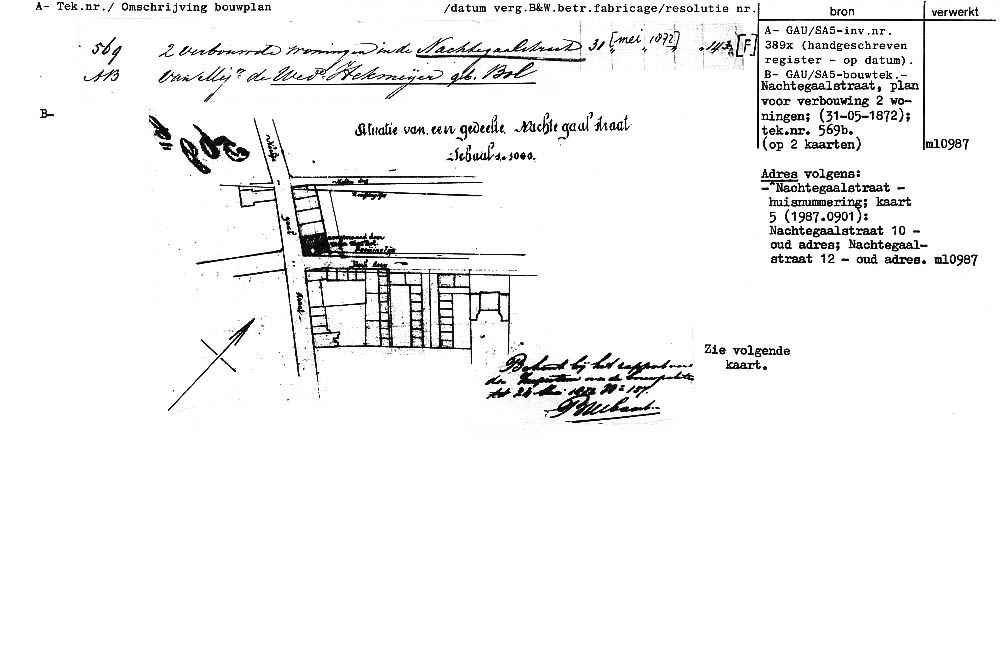 A- Tek.nr./ Omschrijving bouwplan /datum verg.B&W.betr.fabricage/resolutie nr. bron verwerkt
569 2 verbouwde woningen in de Nachtegaalstraat 31 [mei 1872] 143 [F]
AB van Mej. de Wed. Hekmeijer geb. Bol
A- GAU/SA5-inv.nr.
389x (handgeschreven
register - op datum).
B- GAU/SA5-bouwtek.-
Nachtegaalstraat, plan
voor verbouwing 2 wo-
ningen; (31-05-1872);
tek.nr. 569b.
(op 2 kaarten) ml0987
B-
569
Situatie van een gedeelte Nachtegaalstraat
Schaal 1 à 1000.
Adres volgens:
-"Nachtegaalstraat -
huisnummering; kaart
5 (1987.0901):
Nachtegaalstraat 10 -
oud adres; Nachtegaal-
straat 12 - oud adres. ml0987
Nachte
gaal
straat
Zie volgende
kaart.
Behoort bij het rapport van
den
tot 24 Mei 1872 No 157.